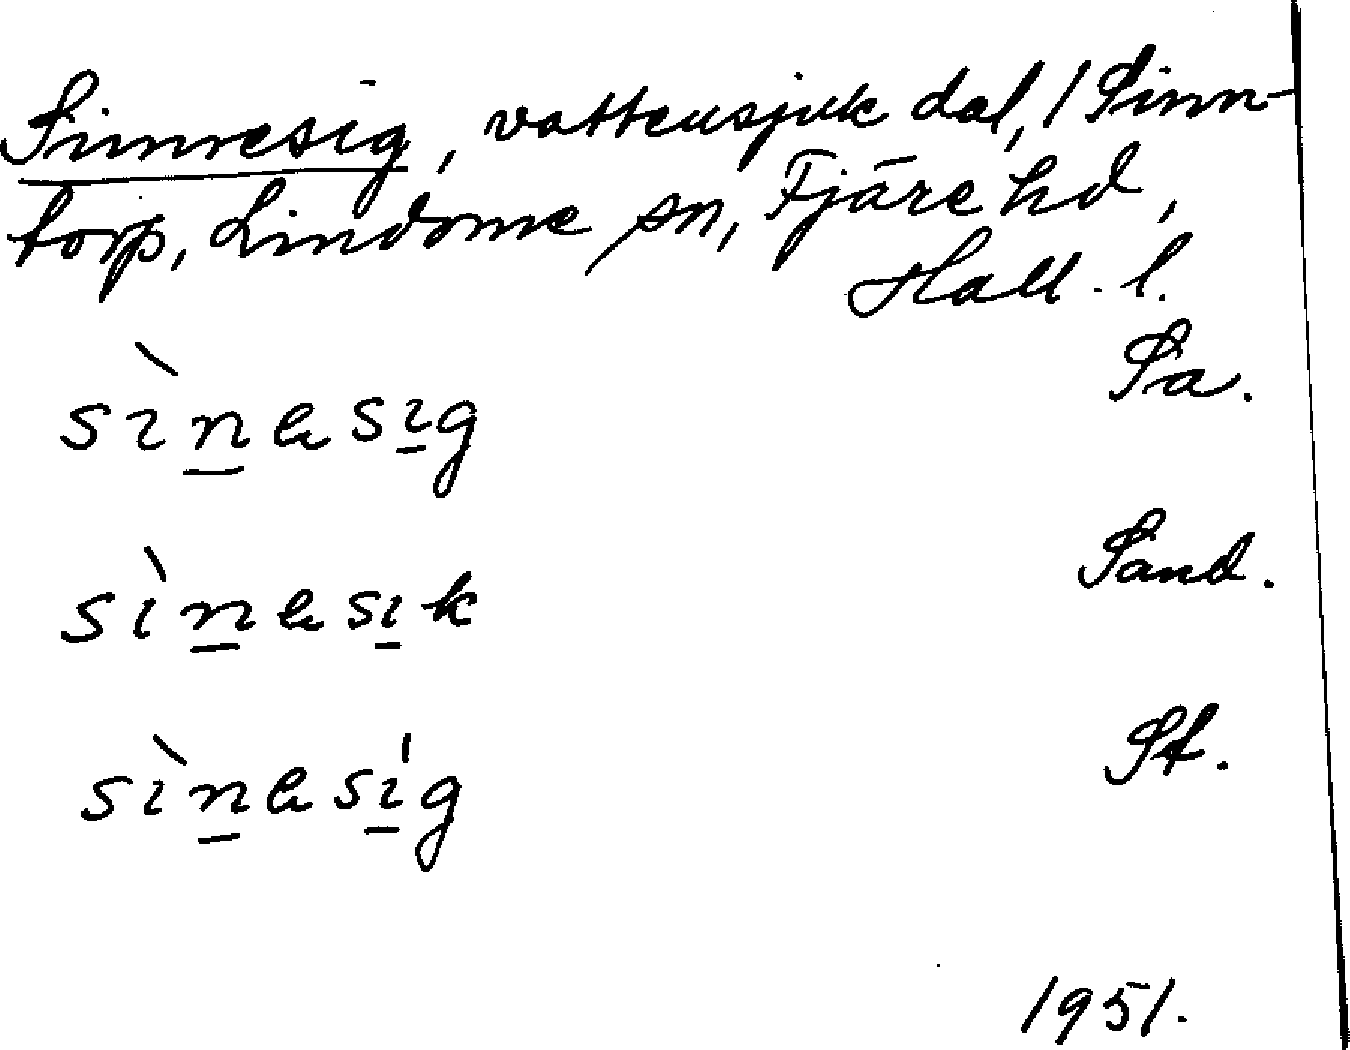 Sinnesig, vattensjuk dal, / Sinn-
torp, Lindome sn, Fjäre hd,
Hall. l.
sìnesig Sa.
sìnesik Sand.
sìnesíg St.
1951.